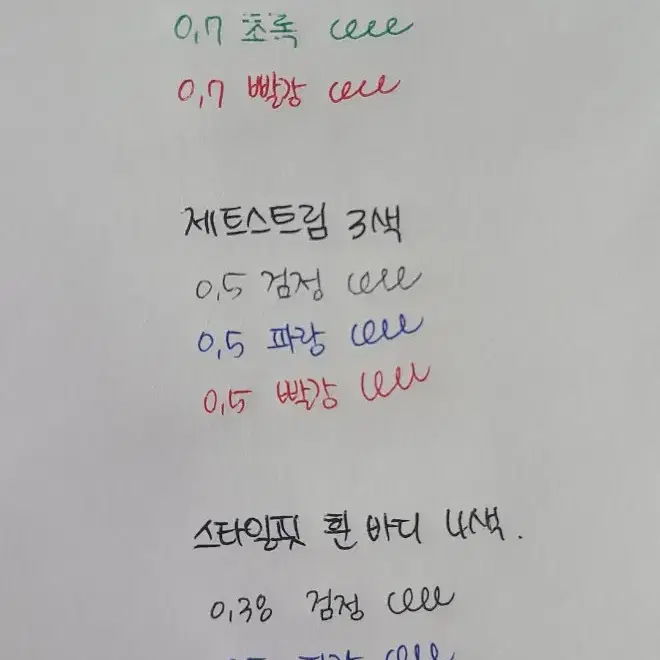 0,7 초록
0,7 빨강
제트스트림 3색
0,5 검정
0,5 파랑
0,5 빨강
스타일핏 흰 바디 4색.
0,38 검정